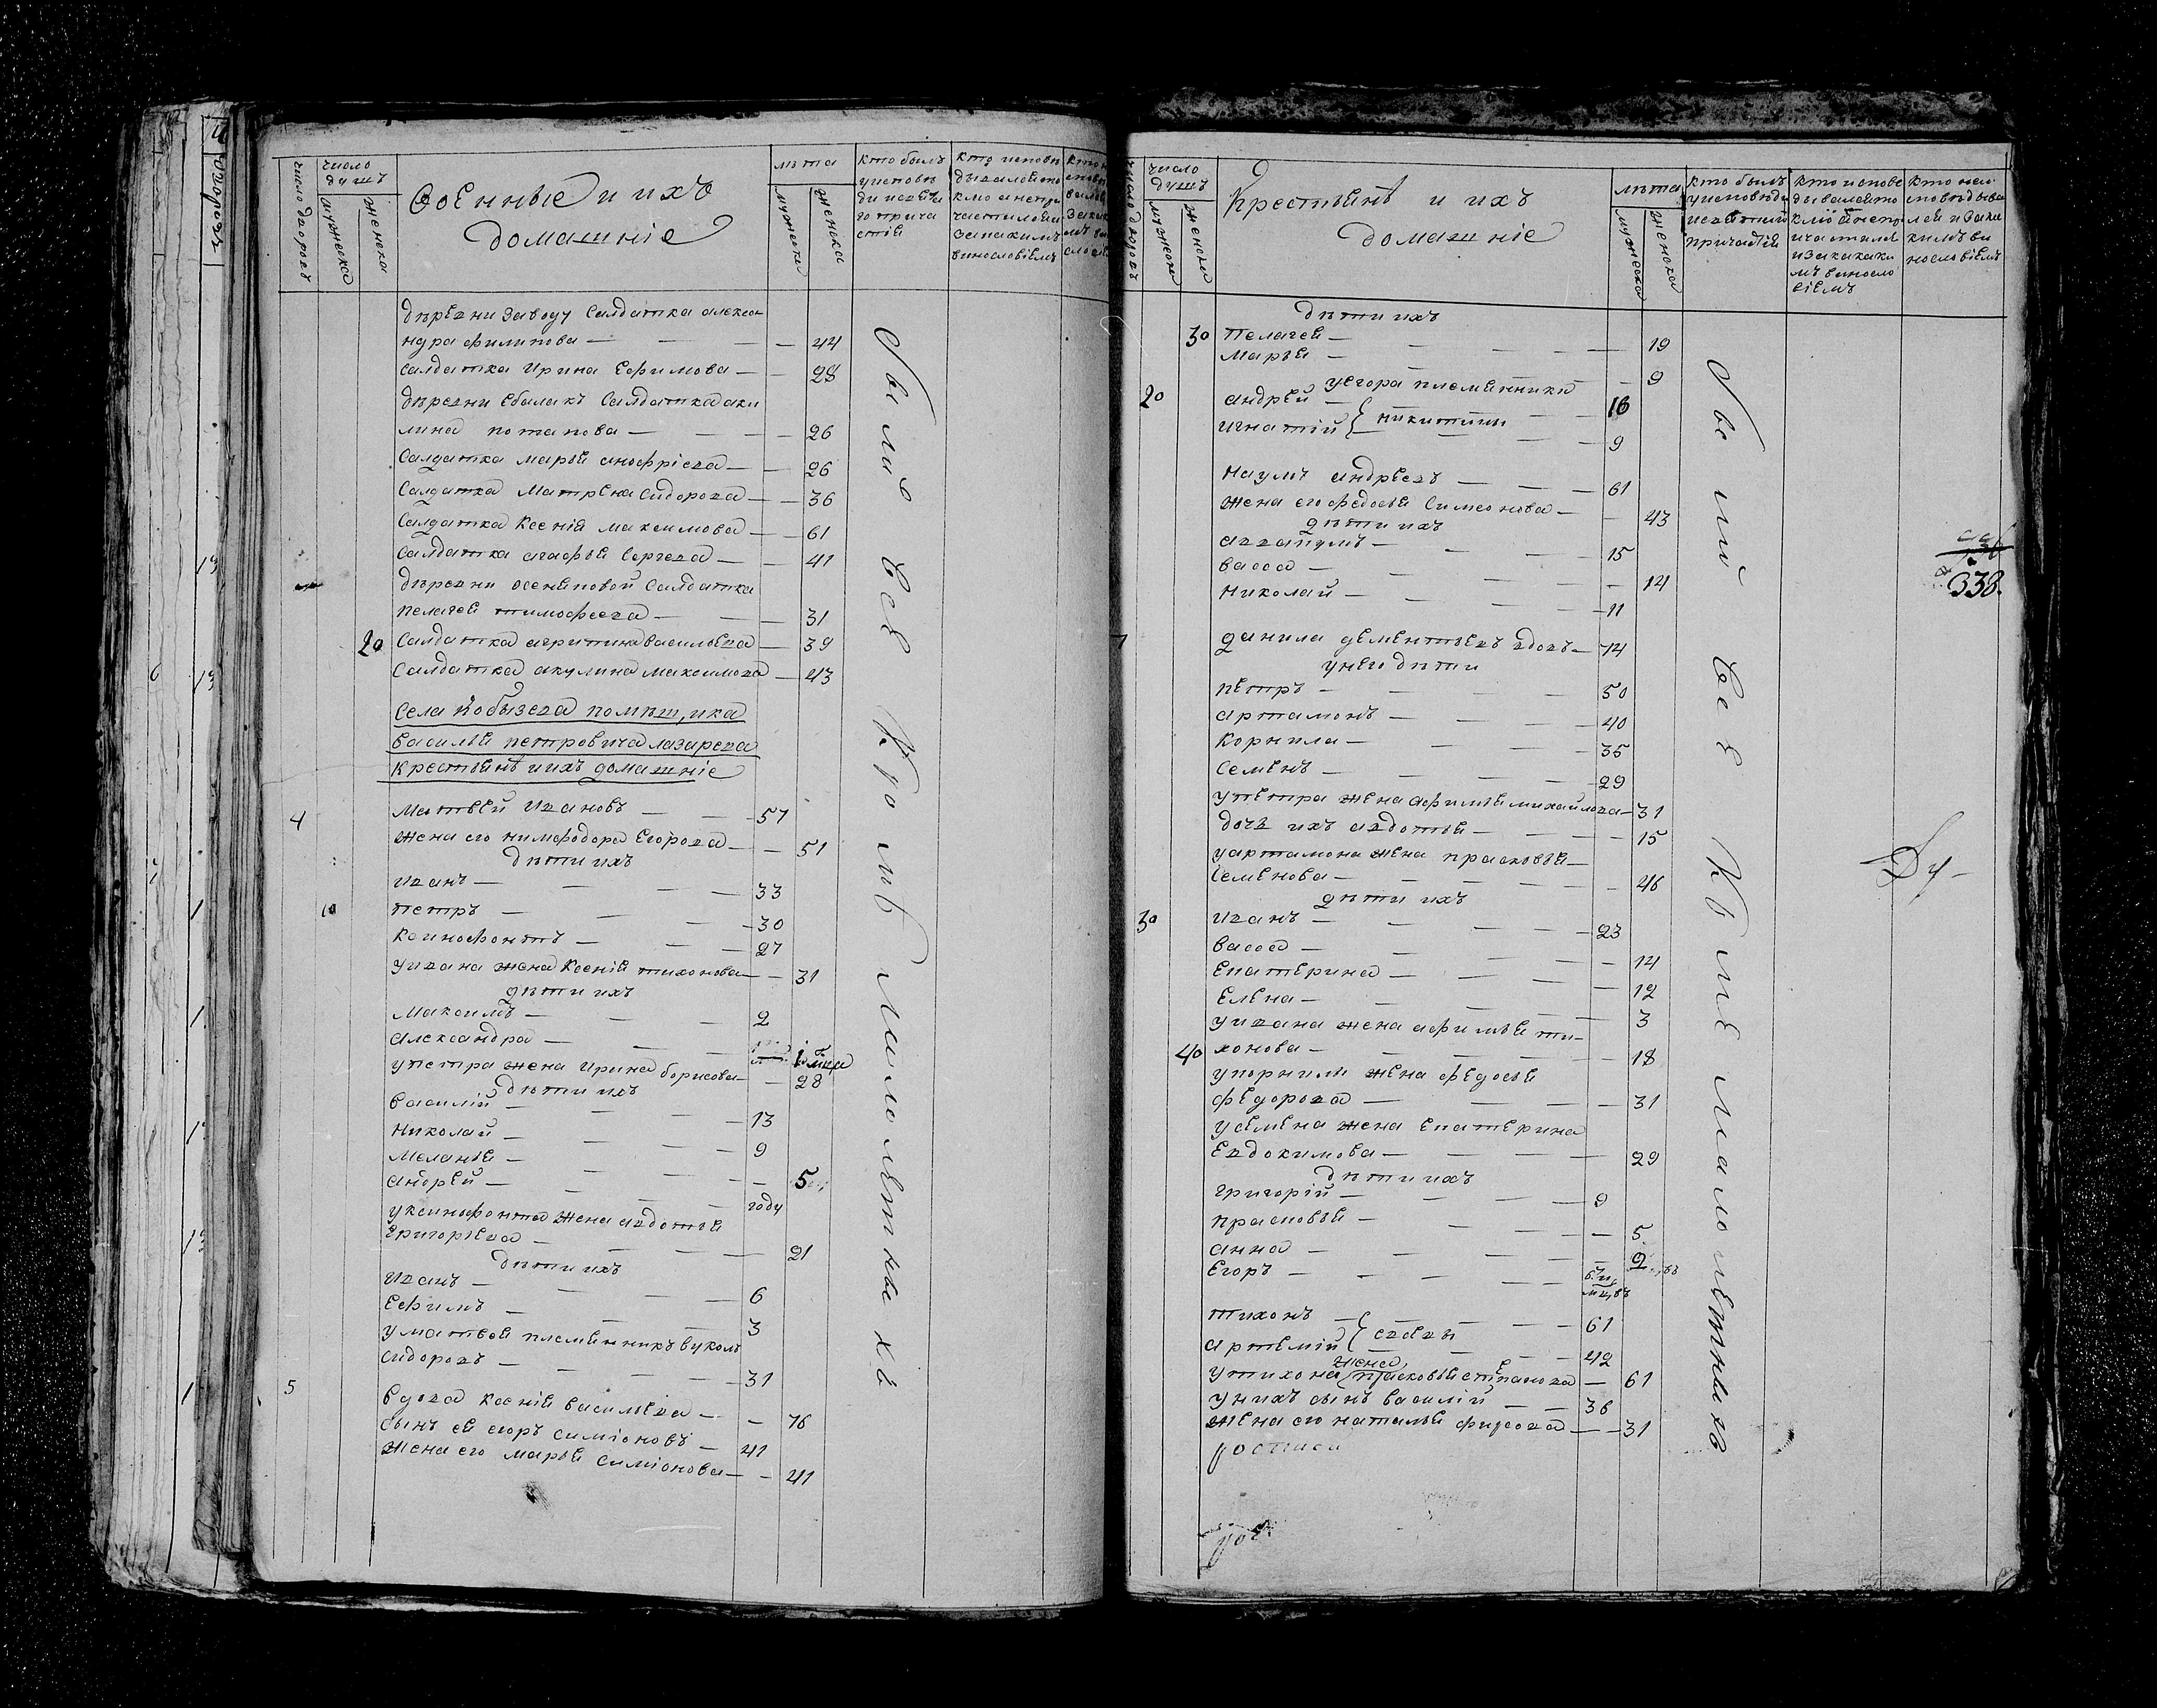 число дворовъ
число душъ
мужеска
женска
Военные и ихъ
домашніе
лѣта
мужеска
женска
кто былъ
у исповѣ
ди и святаго прича
стія
кто исповѣ
дывался то
кмо а не при
частился и
за какимъ
винословіемъ
Деревни заводу Салдатка алекса
ндра филипова — 44
Салдатка Ирина Ефимова — 28
Деревни Ебалакъ Салдатка аку
лина потапова — 26
Салдатка Марья анофріева — 26
Салдатка Матрена Сидорова — 36
Салдатка Ксенія максимова — 61
Салдатка агафья Сергева — 41
Деревни осенѣповой Салдатка
пелагея тимофеева — 31
20 Салдатка агрипина васильева — 39
Салдатка акулина максимова — 43
Села помѣщика
василья петровича лазарева
крестьянѣ и ихъ домашніе
4 Матвей Ивановъ — 57
жена его нимфодора Егорова — 51
дѣти ихъ
Иванъ — 33
10 Петръ — 30
Ксинофонтъ — 27
у ивана жена Ксенія тихонова — 31
дѣти ихъ
Максимъ — 2
Александра —
у петра жена Ирина борисова — 28
дѣти ихъ
Василій — 13
Николай — 9
Меланья — 5
Андрей — году
у ксинофонта жена авдотья
Григорьева — 21
дѣти ихъ
Иванъ — 6
Ефимъ — 3
у матвея племянникъ вуколъ
Сидоровъ — 31
5 вдова Ксенія васильева — 76
сынъ ея егоръ симіоновъ — 41
жена его марья симіонова — 41
Были все кроме малолетныхъ
число дворовъ
число
душъ
мужеска
женска
Крестьянѣ и ихъ
домашніе
лѣта
мужеска
женска
кто былъ
у исповѣди
и святыхъ
причастій
кто испове
дывался то
кмо а не при
частился
и за каки
мъ винсло
віемъ
кто неис
поведыва
лся и за ка
кимъ ви
нословіемъ
дѣти ихъ
30 Пелагея — 19
Марья — 9
у егора племянники
20 андрей — 16
Игнатій } никитины — 9
Наумъ андреевъ — 61
жена его федосья Симеонова — 43
дѣти ихъ
— 15
васса — 14
Николай — 11
7 данила дементьевъ вдовъ — 74
у него дѣти
петръ — 50
артамонъ — 40
Корнила — 35
Семенъ — 29
у петра жена афимья михайлова — 31
дочь ихъ авдотья — 15
у артамона жена прасковья
Семенова — 46
дѣти ихъ
30 Иванъ — 23
васса — 14
Екатерина — 12
Елена — 3
у ивана жена афимья ти-
40 хонова — 18
у корнилы жена федосья
федорова — 31
у семена жена Екатерина
Евдокимова — 29
дѣти ихъ
Григорій — 9
прасковья — 5
анна — 2
Егоръ —
тихонъ — 61
артемій } — 42
у тихона жена прасковья степанова — 61
у нихъ сынъ василій — 36
жена его наталья — 31
росписи
Были все кроме малолетныхъ
338.
Ду-